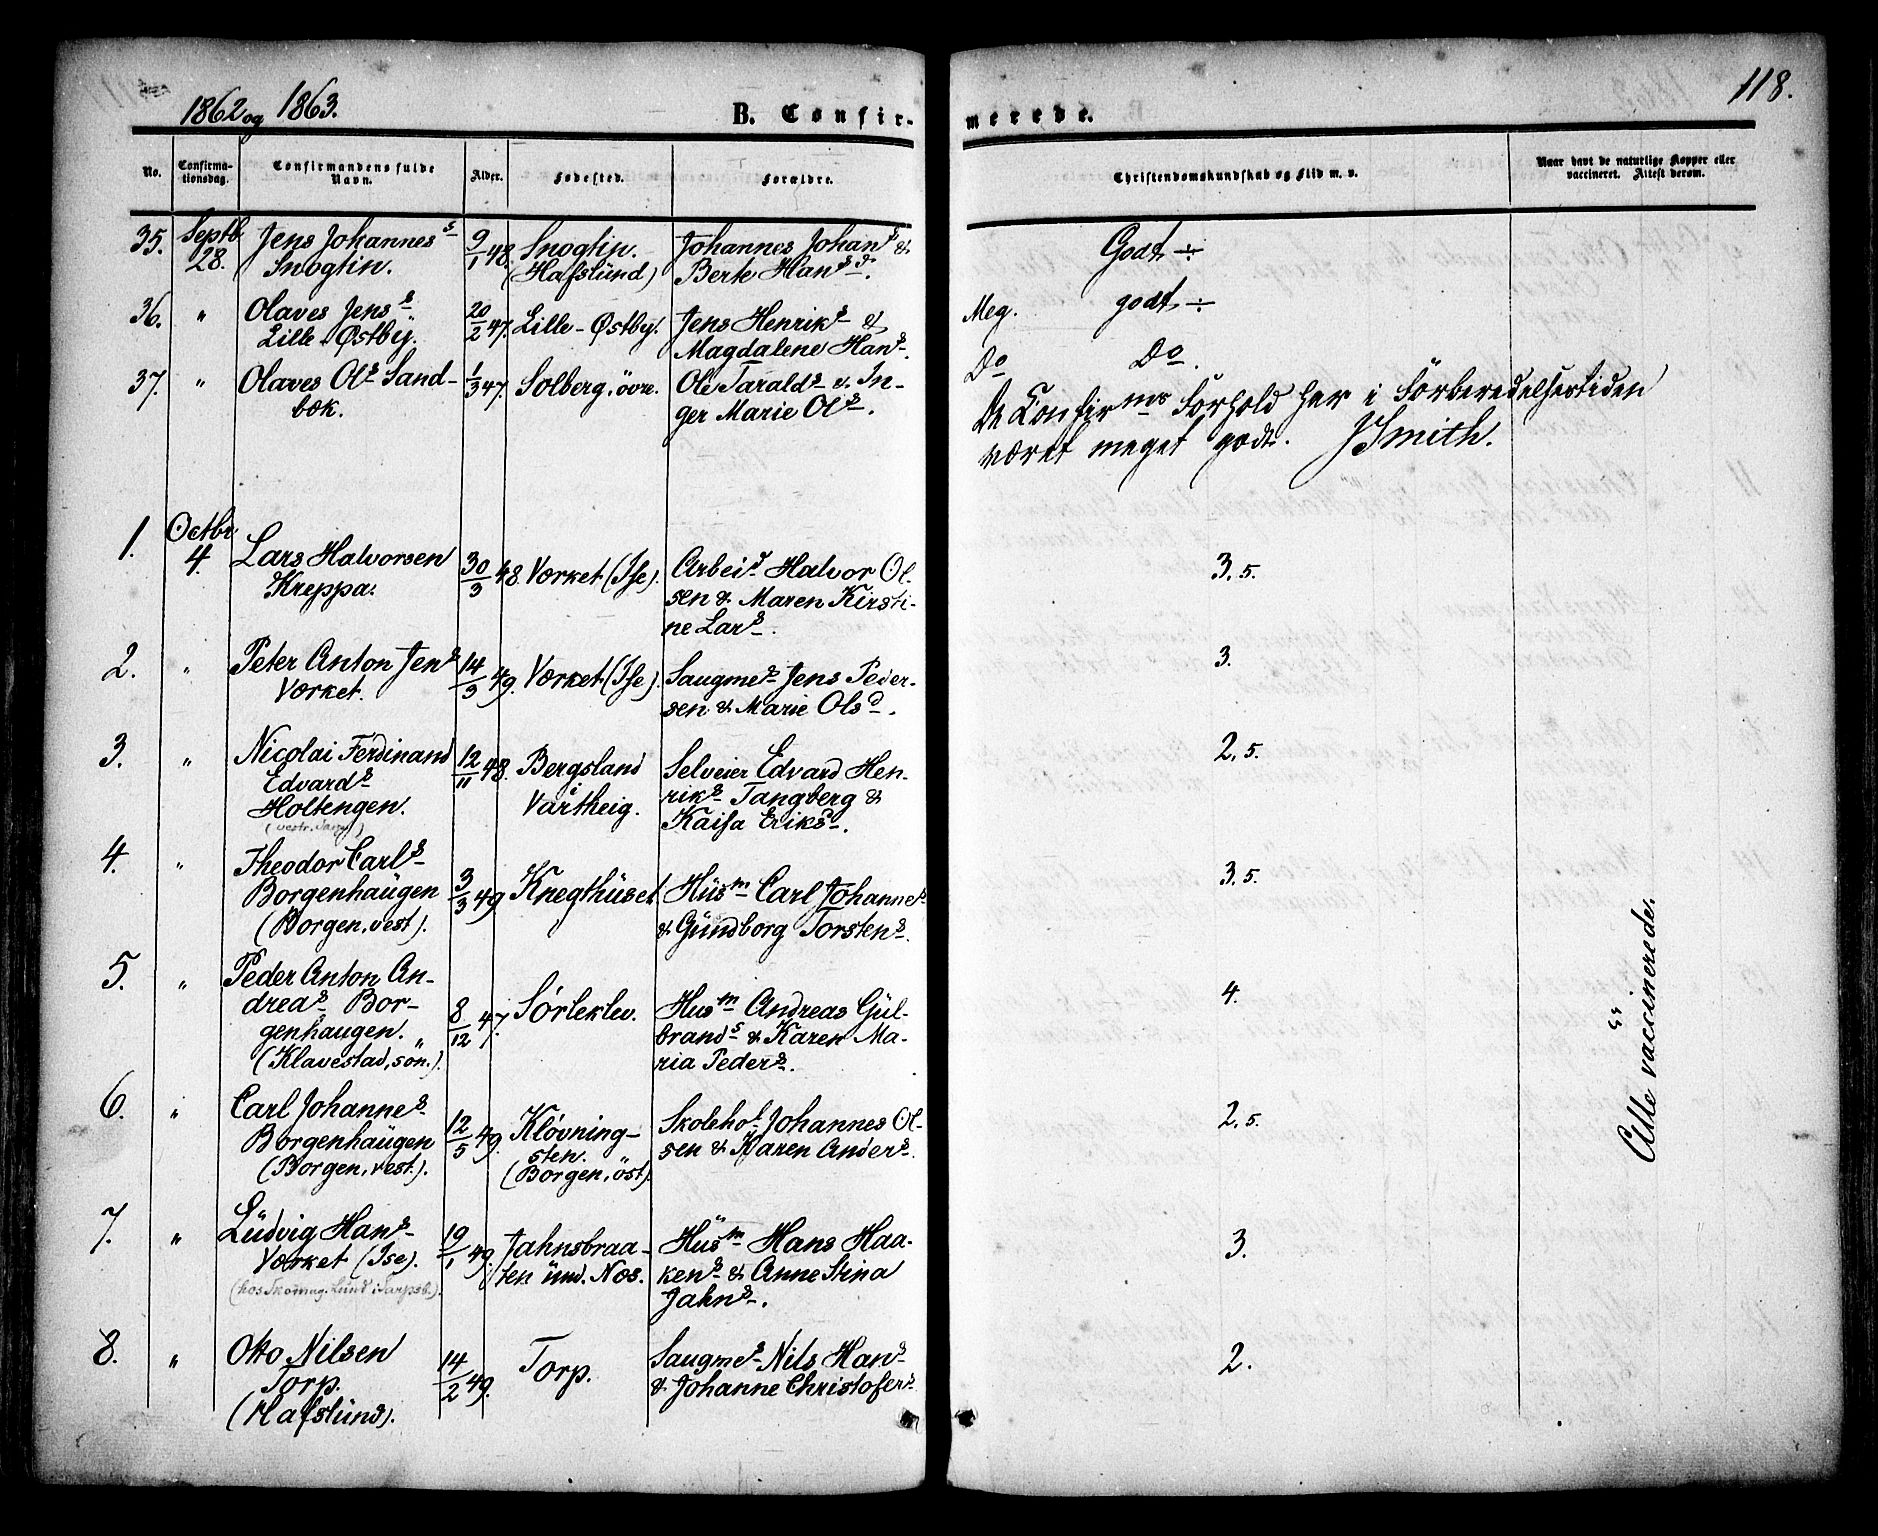 1862 og 1863.
B. Confir-
merede.
118.
No.
Confirma-
tionsdag.
Confirmandens fulde
Navn.
Alder.
Fødested.
Forældre.
Christendomskundskab og Flid m. v.
Naar havt de naturlige Kopper eller
vaccineret. Attest derom.
35. Septb. 28.
Jens Johannes s
Snogtin.
9/1 48.
Snogtin.
(Hafslund)
Johannes Johans &
Berte Hans d.
Godt ÷
36. "
Olaves Jens s
Lille-Østby.
20/2 47.
Lille-Østby.
Jens Henriks &
Magdalene Hans.
Meg. godt ÷
37. "
Olaves Ols Sand-
bæk.
1/3 47.
Solberg, övre.
Ole Taralds & In-
ger Marie Ols.
Do Do.
De Confirmes Forhold har i Forberedelsestiden
været meget godt. J Smith.
1. Octbr 4.
Lars Halvorsen
Kreppa.
30/3 48.
Værket (Ise).
Arbeid Halvor Ol-
sen & Maren Kirsti-
ne Lars.
3,5.
2. "
Peter Anton Jens
Værket.
14/3 49.
Værket (Ise).
Saugmes Jens Peder-
sen & Marie Olsd.
3.
3. "
Nicolai Ferdinand
Edvards
Holtengen.
12/11 48.
Bergsland
i Vartheig.
Selveier Edvard Hen-
riks Tangberg &
Kaisa Eriksd.
2,5.
4. "
Theodor Carls
Borgenhaugen
(Borgen, vest).
3/3 49.
Knegthuset
Husm Carl Johannes
& Gundborg Torstens.
3,5.
5. "
Peder Anton An-
dreas Bor-
genhaugen.
(Klavestad, søn.).
8/12 47.
Sörleklev.
Husm Andreas Gul-
brands & Karen Ma-
ria Peders.
4.
6. "
Carl Johannes
Borgenhaugen
(Borgen, vest.).
12/5 49.
Kløvning-
sten.
(Borgen, öst)
Skolehol Johannes Ol-
sen & Karen Anders.
2,5.
7. "
Ludvig Hans
Værket (Ise).
(hos Skomag. Lund i Sarpsb.).
19/1 49.
Jahnsbraa-
ten und. Næs.
Husm Hans Haa-
kens & Anne Stina
Jahns.
3.
8. "
Otto Nilsen
Torp.
(Hafslund).
14/2 49.
Torp.
Saugmes Nils Hans
& Johanne Christofers
2.
Alle vaccinerede.